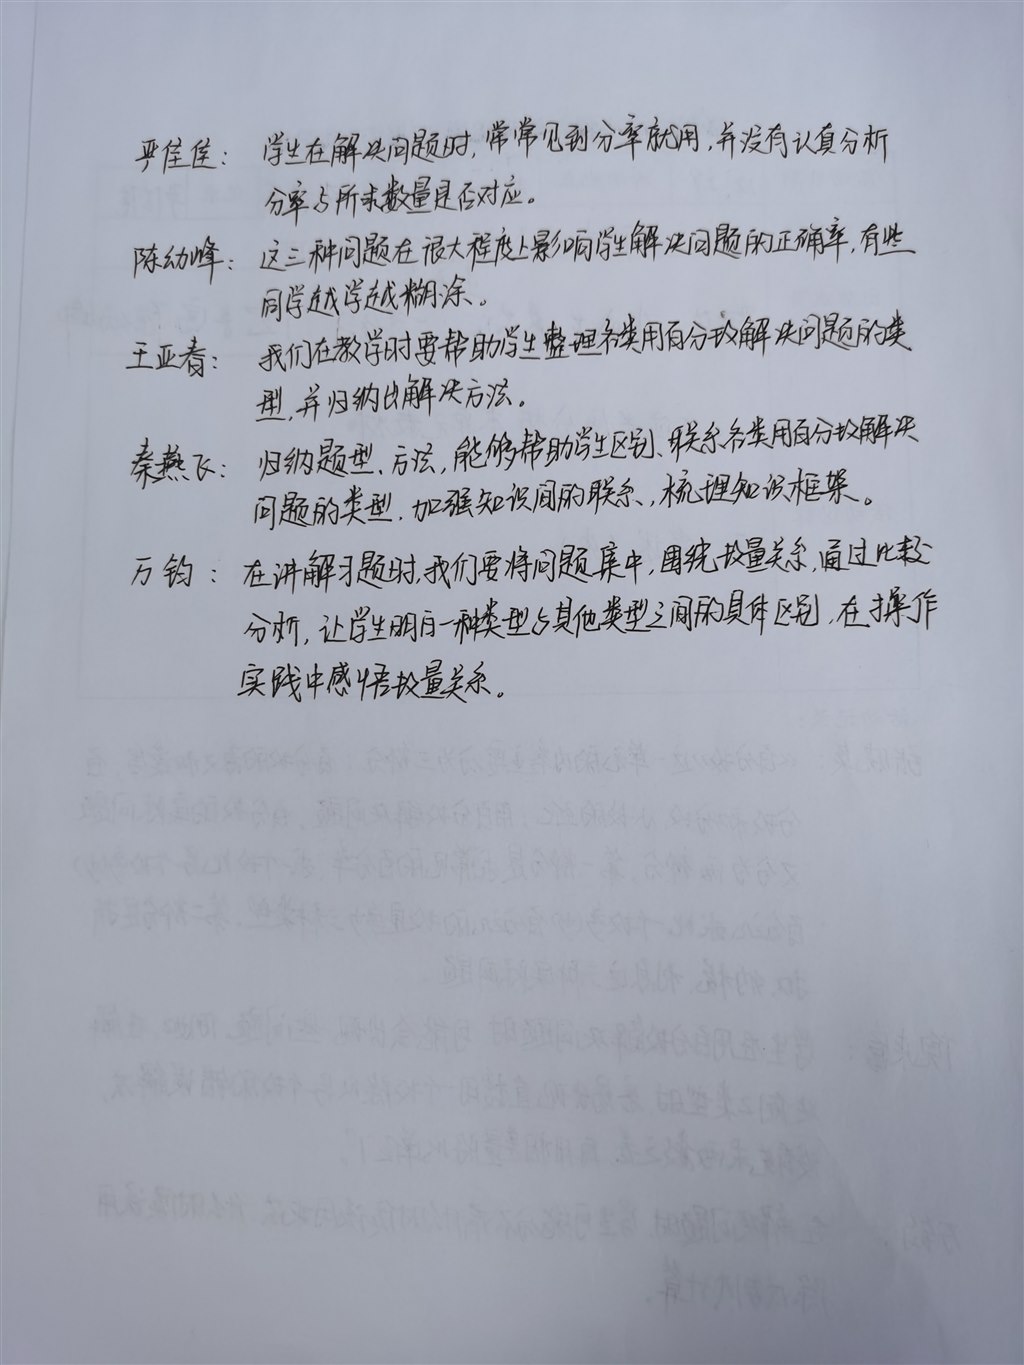 严佳佳：学生在解决问题时，常常见到分率就用，并没有认真分析
分率与所求数量是否对应。
陈幼峰：这三种问题在很大程度上影响学生解决问题的正确率，有些
同学越学越糊涂。
王亚春：我们在教学时要帮助学生整理各类用百分数解决问题的类
型，并归纳出解决方法。
秦燕飞：归纳题型、方法，能够帮助学生区别、联系各类用百分数解决
问题的类型，加强知识间的联系，梳理知识框架。
万钧：在讲解习题时，我们要将问题集中，围绕数量关系，通过比较
分析，让学生明白一种类型与其他类型之间的具体区别，在操作
实践中感悟数量关系。